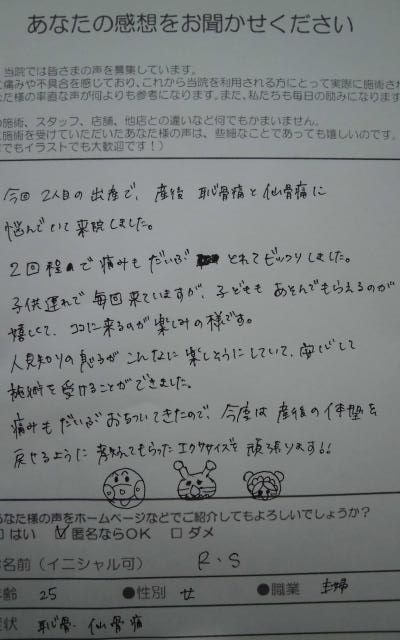 あなたの感想をお聞かせください
当院では皆さまの声を募集しています。
痛みや不具合を感じており、これから当院を利用される方にとって実際に施術され
た様の率直な声が何よりも参考になります。また、私たちも毎日の励みになります
の施術、スタッフ、店舗、他店との違いなど何でもかまいません。
施術を受けていただいたあなた様の声は、些細なことであっても嬉しいのです。
でもイラストでも大歓迎です！）
今回 2人目の出産で、産後 恥骨痛と仙骨痛に
悩んでいて来院しました。
2回程で痛みも だいぶ とれてビックリしました。
子供連れで毎回来ていますが、子どもも あそんでもらえるのが
嬉しくて、ココに来るのが楽しみの様です。
人見知りの息子が こんなに 楽しそうにしていて、安心して
施術を受けることができました。
痛みもだいぶおちついてきたので、今度は産後の体型を
戻せるように 教えてもらった エクササイズを 頑張ります!!
あなた様の声をホームページなどでご紹介してもよろしいでしょうか？
□ はい ☑ 匿名ならOK □ ダメ
名前（イニシャル可） R・S
齢 25 ●性別 女 ●職業 主婦
状 恥骨・仙骨痛